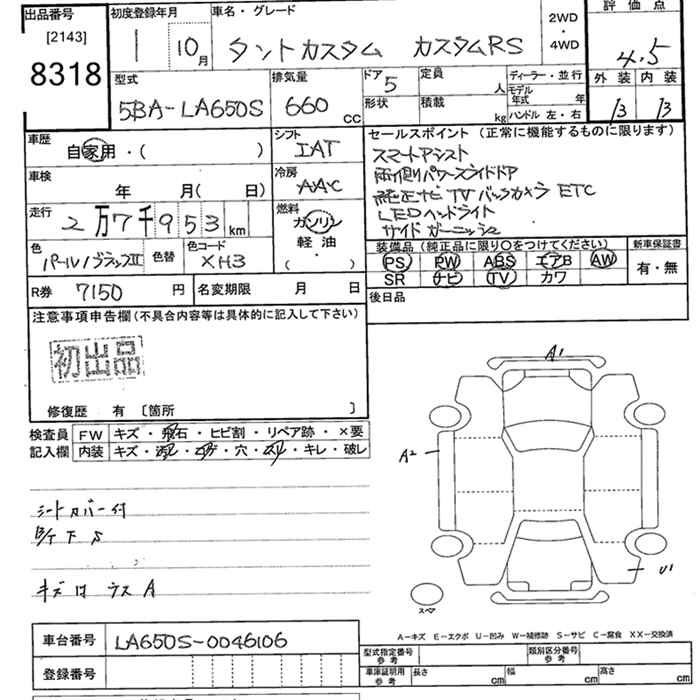 出品番号
[2143]
8318
初度登録年月
1 10月
車名・グレード
タントカスタム カスタムRS
2WD
・
4WD
評価点
4.5
型式
5BA-LA650S
排気量
660 CC
ドア 5
形状
定員 人
積載 kg
ディーラー・並行
モデル年式 年
ハンドル 左・右
外装 内装
B B
車歴
自家用・( )
シフト
IAT
セールスポイント (正常に機能するものに限ります)
スマートアシスト
両側パワースライドドア
純正ナビ TV バックカメラ ETC
LEDヘッドライト
サイドガーニッシュ
車検
年 月( 日)
冷房
AAC
走行
2万7千953km
燃料
ガソリン
軽油
( ・ )
色
パール/ブラックIII
色替
色コード
XH3
装備品 (純正品に限り○をつけてください)
PS PW ABS エアB AW
SR ナビ TV カワ
新車保証書
有・無
R券 7150円
名変期限 月 日
後日品
注意事項申告欄(不具合内容等は具体的に記入して下さい)
初出品
修復歴 有 〔箇所 〕
検査員
記入欄
FW キズ・飛石・ヒビ割・リペア跡・×要
内装 キズ・汚レ・コゲ・穴・スレ・キレ・破レ
シートカバー付
キズ凹 ラス A
A1
A2
U1
スペア
A-キズ E-エクボ U-凹み W-補修跡 S-サビ C-腐食 XX-交換済
車台番号 LA650S-0046106
登録番号
型式指定番号
参考
類別区分番号
参考
車庫証明用
参考
長さ cm 幅 cm 高さ cm